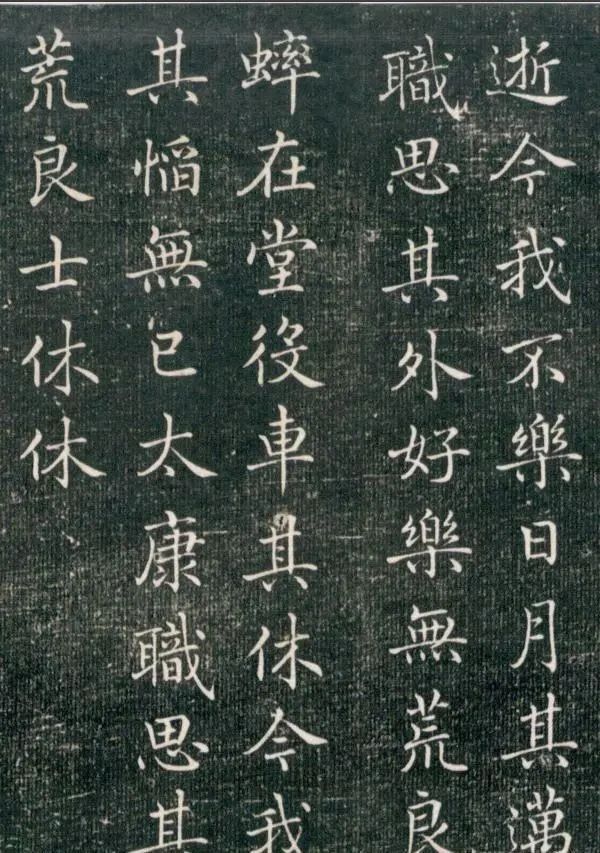 逝今我不樂日月其邁
職思其外好樂無荒良
蟀在堂役車其休今我
其慆無已太康職思其
荒良士休休